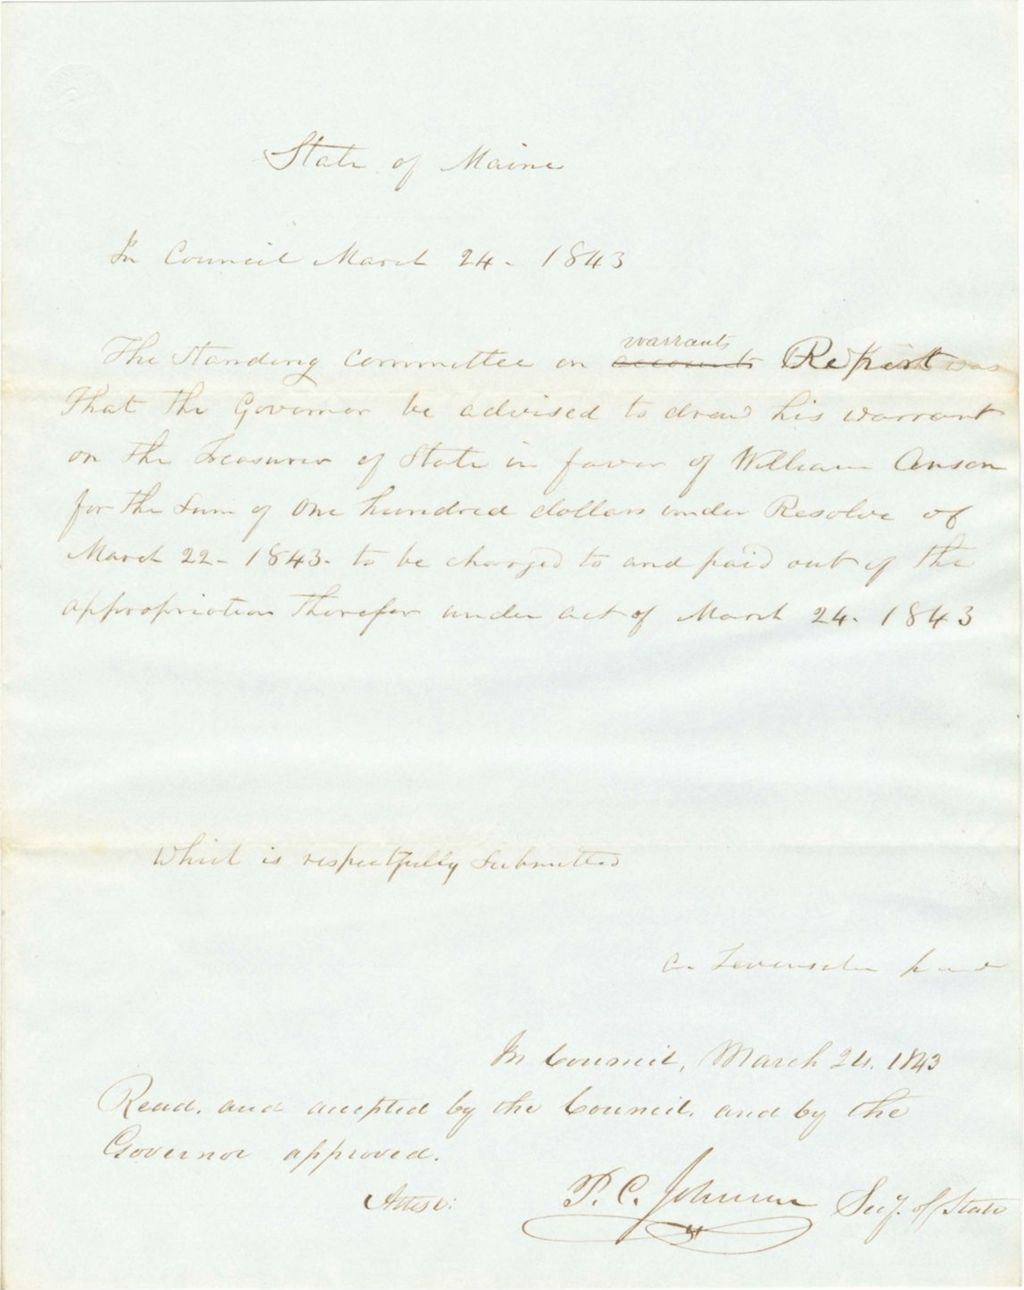 State of Maine
In Council March 24 - 1843
warrants
The Standing Committee on accounts Report
That the Governor be advised to draw his warrant
on the Treasurer of State in favor of William Anson
for the Sum of One hundred dollars under Resolve of
March 22 - 1843 - to be charged to and paid out of the
appropriation therefor under act of March 24. 1843
Which is respectfully Submitted
In Council, March 24. 1843
Read, and accepted by the Council, and by the
Governor approved.
Attest: P. C. Johnson Secy. of State